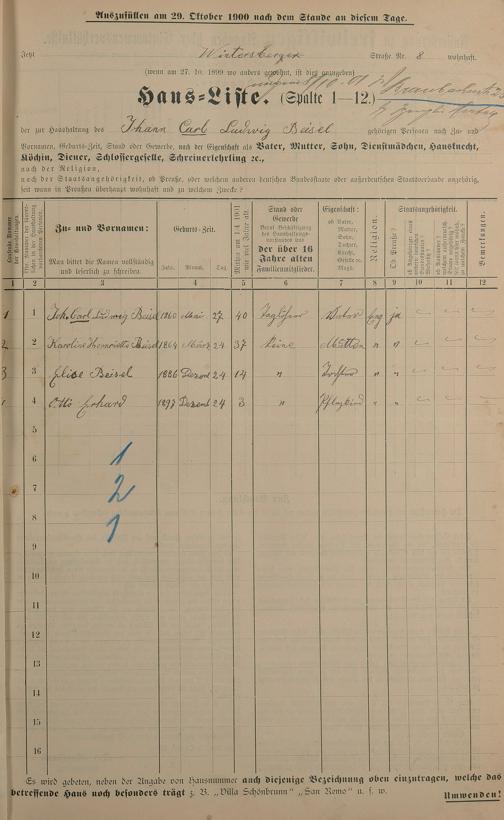 Auszufüllen am 29. Oktober 1900 nach dem Stande an diesem Tage.
Jetzt Wintersberger Straße Nr. 8 wohnhaft.
(wenn am 27. 10. 1899 wo anders gewohnt, ist dies anzugeben)
Haus=Liste. (Spalte 1—12.)
der zur Haushaltung des Johann Carl Ludwig Beisel gehörigen Personen nach Zu- und
Vornamen, Geburts-Zeit, Stand oder Gewerbe, nach der Eigenschaft als Vater, Mutter, Sohn, Dienstmädchen, Hausknecht,
Köchin, Diener, Schlossergeselle, Schreinerlehrling ꝛc.,
nach der Religion,
nach der Staatsangehörigkeit, ob Preuße, oder welchem anderen deutschen Bundesstaate oder außerdeutschen Staatsverbande angehörig,
seit wann in Preußen überhaupt wohnhaft und zu welchem Zwecke?
Zu- und Vornamen:
Man bittet die Namen vollständig und leserlich zu schreiben.
Geburts-Zeit.
Jahr. Monat. Tag.
Stand oder Gewerbe
der über 16 Jahre alten Familienmitglieder.
Eigenschaft:
ob Vater, Mutter, Sohn, Tochter, Knecht, Geselle ꝛc. Magd.
Religion.
Staatsangehörigkeit.
Ob Preuße?
Bemerkungen.
1 2 3 4 5 6 7 8 9 10 11 12
1 1 Joh. Carl Ludwig Beisel 1860 Mai 27. 40 Taglöhner Vater evg ja
2 2 Karoline Beisel 1864 März 24 37 Keine Mutter " "
3 3 Elise Beisel 1886 Dezem 24 14 " Tochter " "
4 Otto Erhard 1897 Dezemb 24 3 " Pflegkind " "
5
6
1
7
2
8
1
9
10
11
12
13
14
15
16
Es wird gebeten, neben der Angabe von Hausnummer auch diejenige Bezeichnung oben einzutragen, welche das
betreffende Haus noch besonders trägt z. B. „Villa Schönbrunn" „San Remo" u. s. w.
Umwenden!